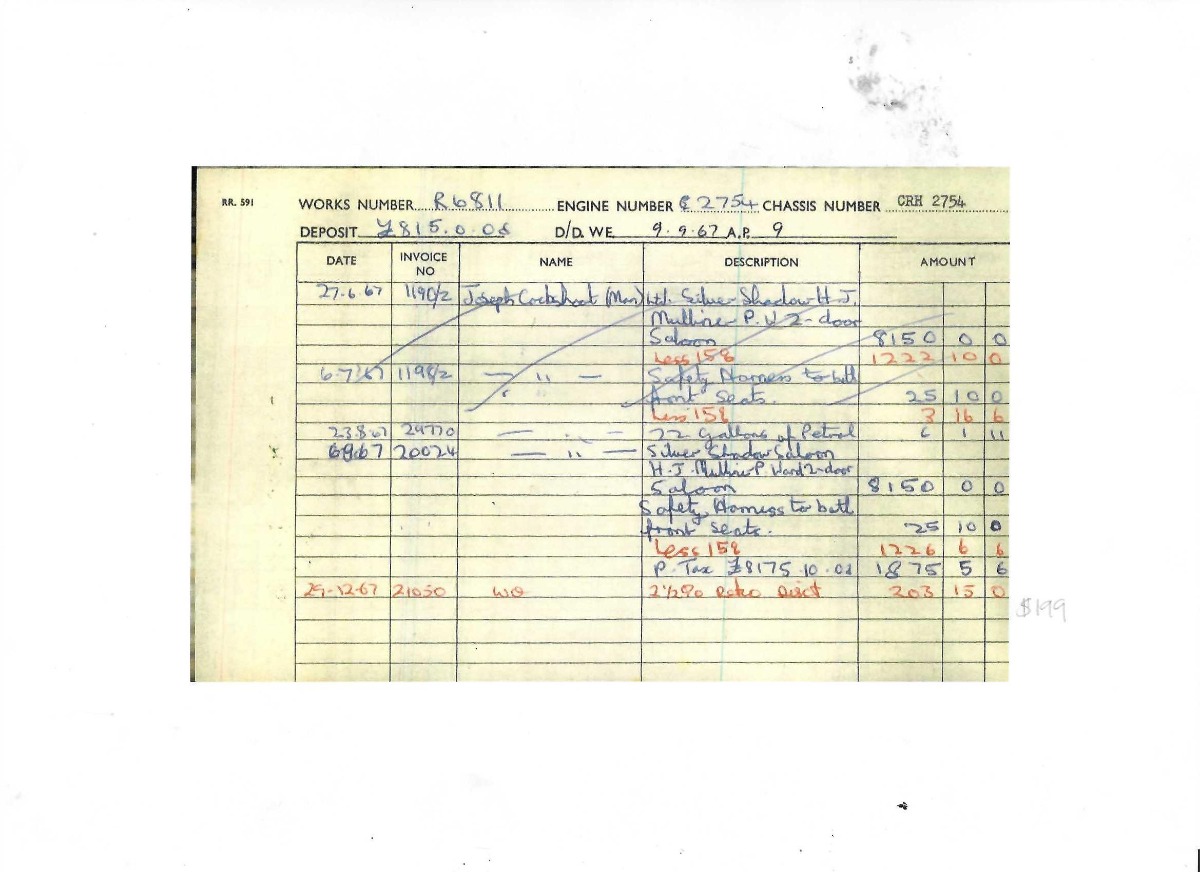 RR. 591
WORKS NUMBER R6811 ENGINE NUMBER C2754 CHASSIS NUMBER CRH 2754
DEPOSIT £815.0.0d D/D. WE. 9.9.67 A.P. 9
DATE INVOICE NO NAME DESCRIPTION AMOUNT
27.6.67 1190/2 Joseph Cockshoot (Man) Ltd. Silver Shadow H.J.
Mulliner P.W 2-door
Saloon 8150 0 0
Less 15% 1222 10 0
6.7.67 1198/2 — " — Safety Harness to both
front Seats. 25 10 0
Less 15% 3 16 6
23.8.67 29770 — " — 22 Gallons of Petrol 6 1 11
6.9.67 20024 — " — Silver Shadow Saloon
H.J. Mulliner P. Ward 2-door
Saloon 8150 0 0
Safety Harness to both
front Seats. 25 10 0
Less 15% 1226 6 6
P. Tax £8175.10.0d 1875 5 6
29-12-67 21050 2½% Retro Disct 203 15 0
$199